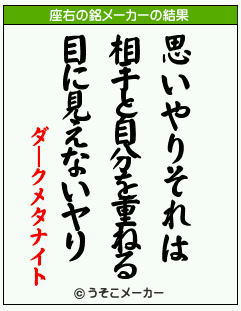 座右の銘メーカーの結果
思いやりそれは
相手と自分を重ねる
目に見えないヤリ
ダークメタナイト
©うそこメーカー